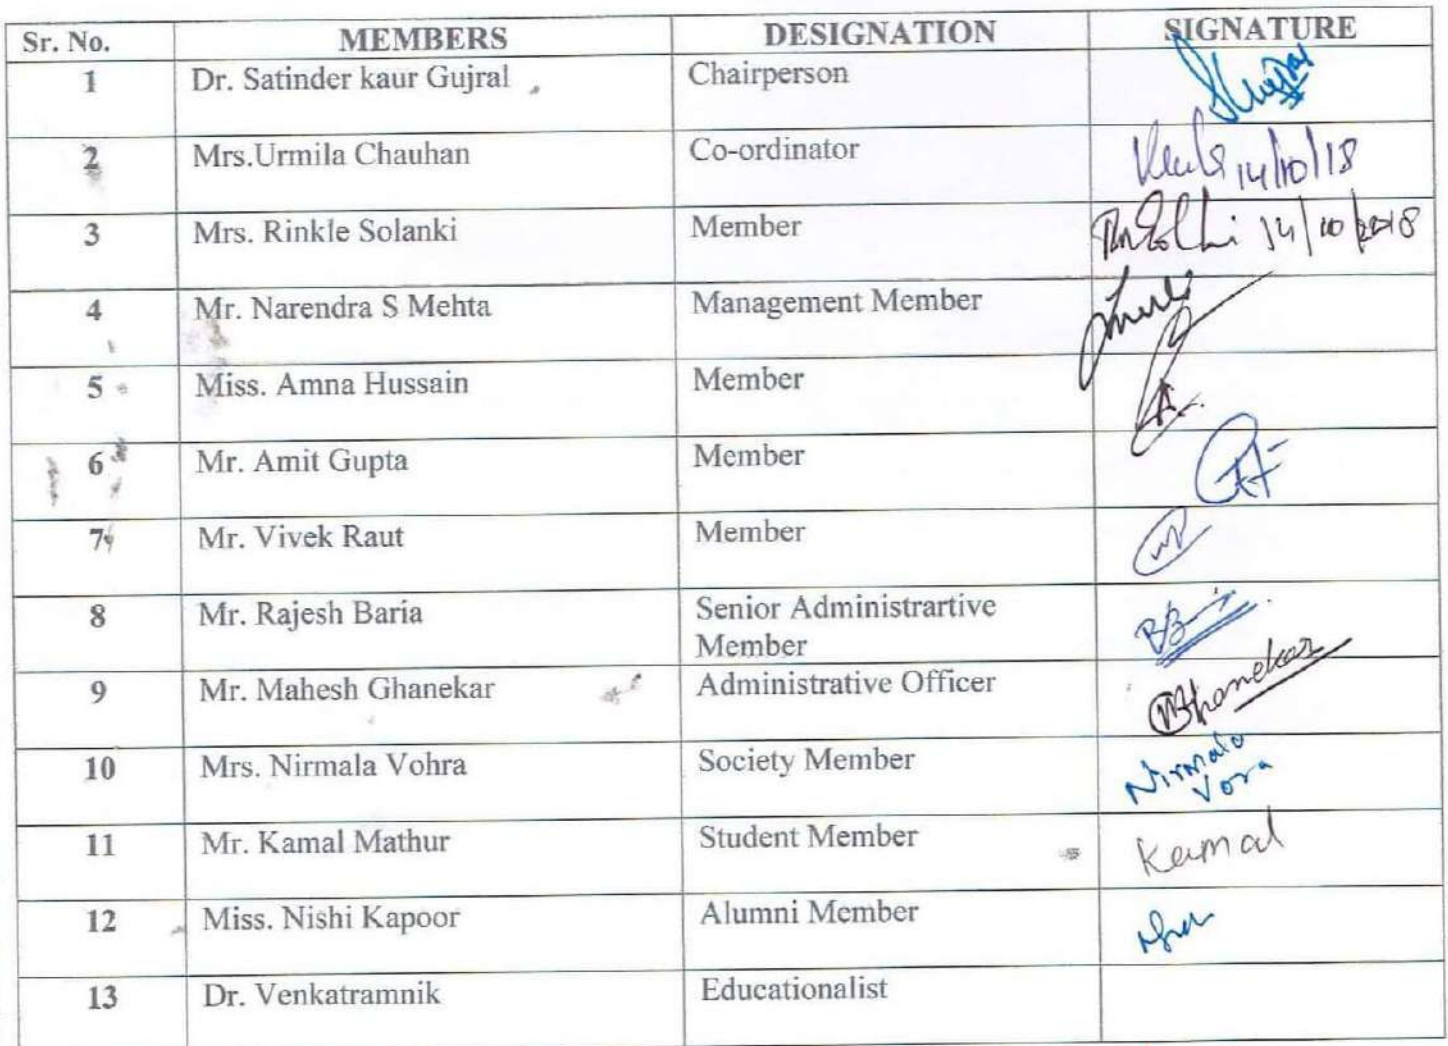 Sr. No. MEMBERS DESIGNATION SIGNATURE
1 Dr. Satinder kaur Gujral Chairperson
2 Mrs.Urmila Chauhan Co-ordinator 14/10/18
3 Mrs. Rinkle Solanki Member 14/10/2018
4 Mr. Narendra S Mehta Management Member
5 Miss. Amna Hussain Member
6 Mr. Amit Gupta Member
7 Mr. Vivek Raut Member
8 Mr. Rajesh Baria Senior Administrartive
Member
9 Mr. Mahesh Ghanekar Administrative Officer
10 Mrs. Nirmala Vohra Society Member Nirmala
Vora
11 Mr. Kamal Mathur Student Member Kamal
12 Miss. Nishi Kapoor Alumni Member
13 Dr. Venkatramnik Educationalist